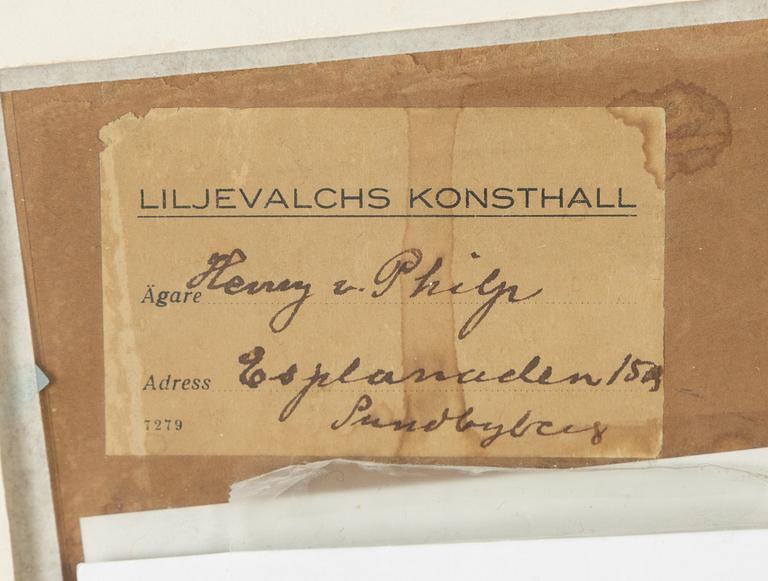 LILJEVALCHS KONSTHALL
Ägare Henry v. Philp
Adress Esplanaden
7279 Sundbyberg